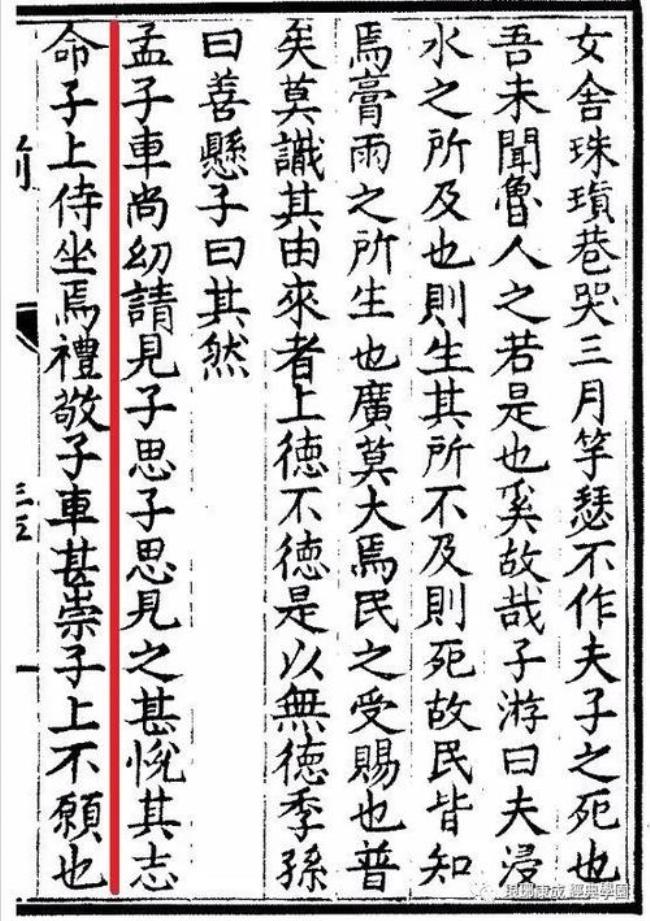 女舍珠瑱巷哭三月竽瑟不作夫子之死也
吾未聞魯人之若是也奚故哉子游曰夫浸
水之所及也則生其所不及則死故民皆知
焉膏雨之所生也廣莫大焉民之受賜也普
矣莫識其由來者上德不德是以無德季孫
曰善懸子曰其然
孟子車尚幼請見子思子思見之甚悅其志
命子上侍坐焉禮敬子車甚崇子上不願也
琅琊東成 經典學園